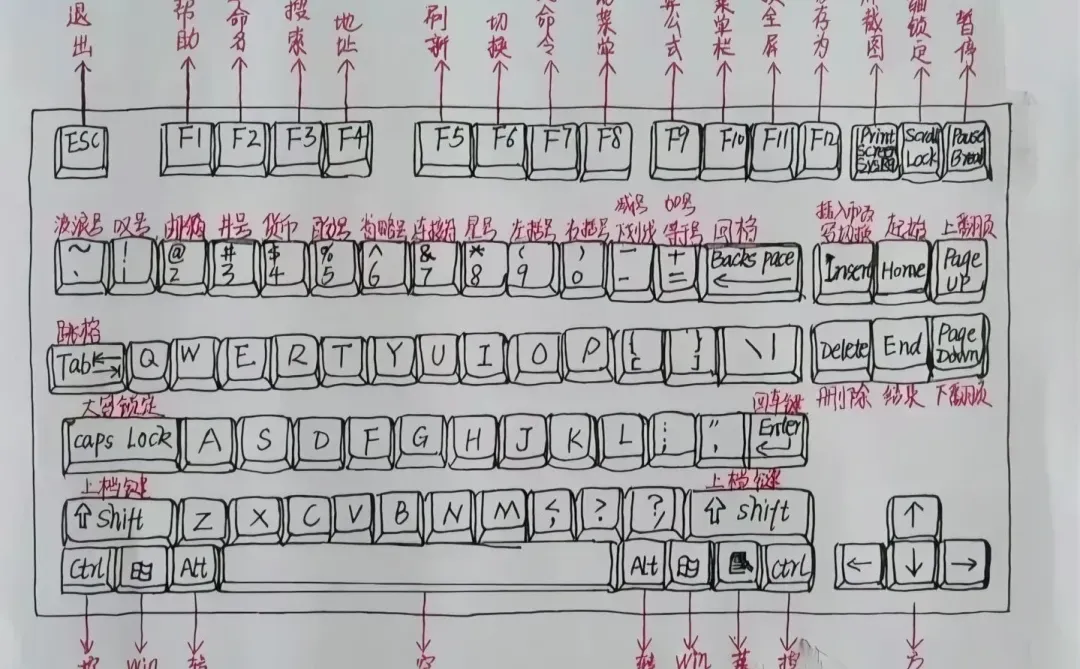 退出 帮助 命名 搜索 地址 刷新 切换 命令 菜单 公式 菜单栏 全屏 存为 截图 锁定 暂停
ESC F1 F2 F3 F4 F5 F6 F7 F8 F9 F10 F11 F12 Print Screen SysRq Scroll Lock Pause Break
波浪号 叹号 邮箱 井号 货币 百分号 省略号 连接符 星号 左括号 右括号 减号 下划线 加号 等号 回格 插入而改写切换 起始 上翻页
~ ` ! @ 2 # 3 $ 4 % 5 ^ 6 & 7 * 8 ( 9 ) 0 — - + = Backspace ← Insert Home Page UP
跳格
Tab Q W E R T Y U I O P { [ } ] \ | Delete End Page Down
大写锁定 回车键 删除 结束 下翻页
caps Lock A S D F G H J K L : ; " , Enter ←
上档键 上档键
⇧ Shift Z X C V B N M < , ? . ? / ⇧ shift ↑
Ctrl Alt Alt Ctrl ← ↓ →
Win 空 Win